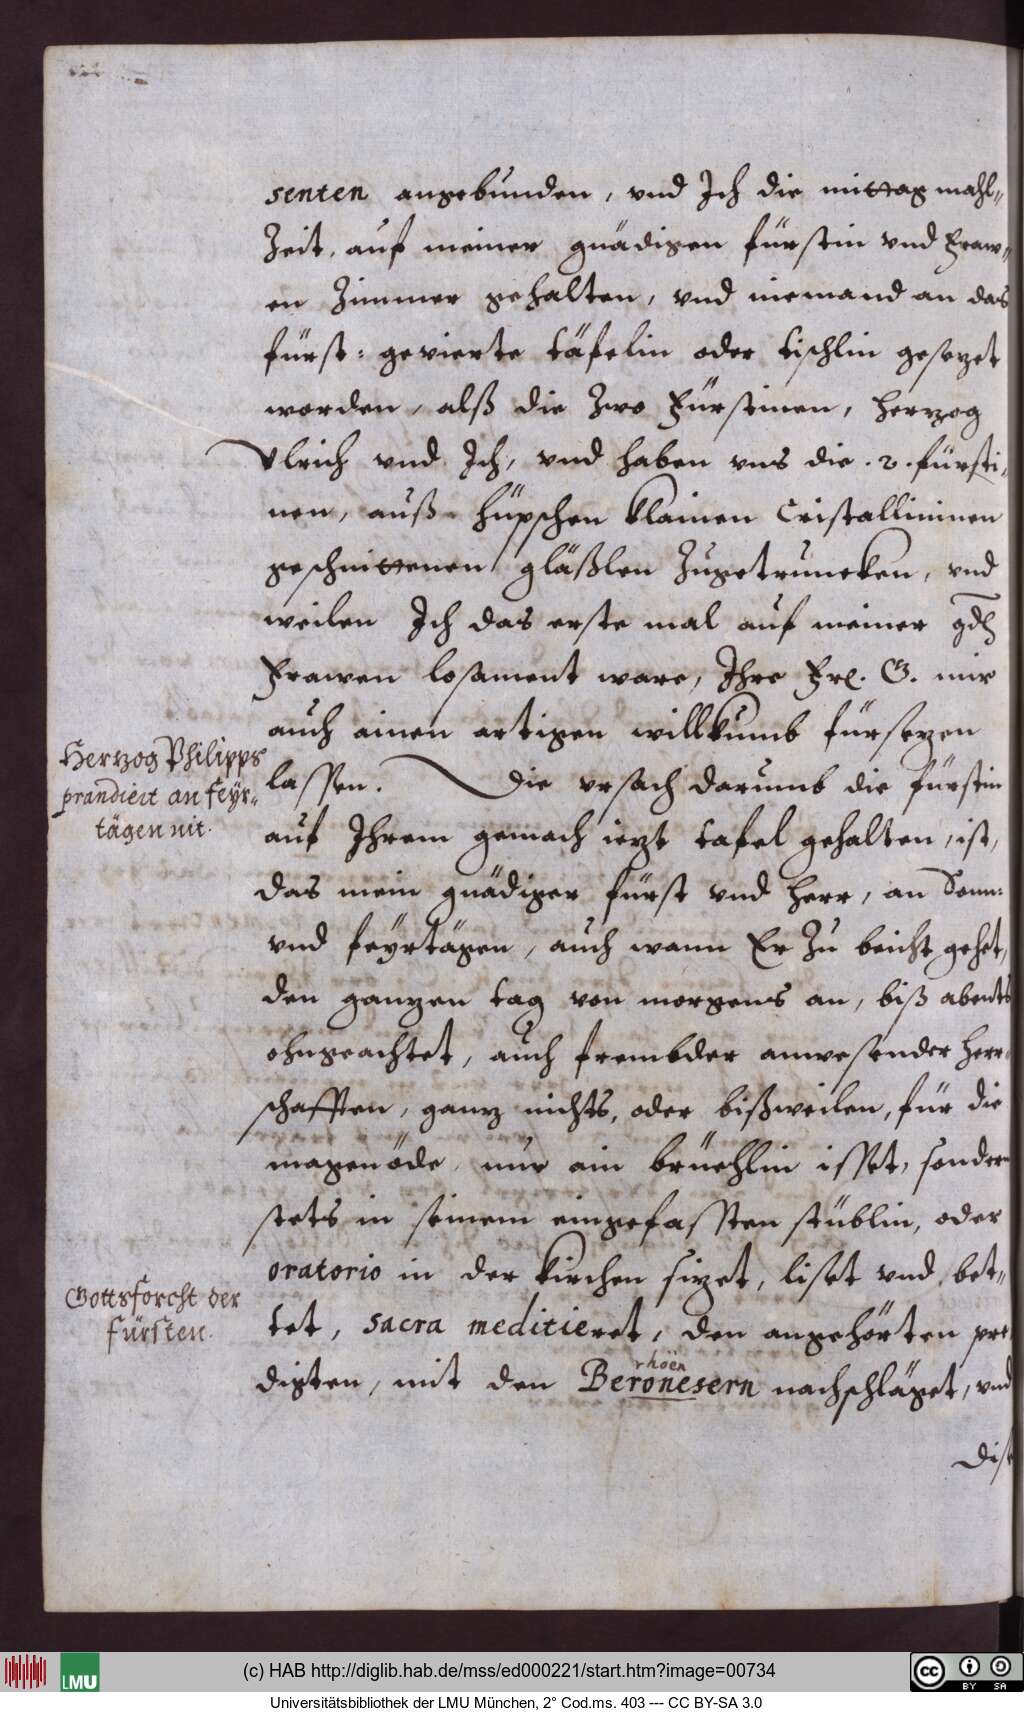 senten angebunden, vnd Ich die mittag mahl⸗
Zeit, auf meiner gnädigen fürstin vnd Fraw⸗
en Zimmer gehalten, vnd niemand an das
fürst: gevierte täfelin oder tischlin gesezet
worden, alß die Zwo Fürstinen, Herzog
Vlrich vnd Ich, vnd haben vns die .2. fürsti⸗
nen, auß hüpschen klainen Cristallininen
geschnittenen gläßlen Zugetruncken, vnd
weilen Ich das erste mal auf meiner gdl
Frawen losament ware, Ihre Frl. G. mir
auch ainen artigen willkumb fürsezen
lassen. Die vrsach darumb die fürstin
Herzog Philipps
prandiert an feÿr⸗
tägen nit.
auf Ihrem gemach iezt tafel gehalten, ist,
das mein gnädiger fürst vnd Herr, an Sonn:
vnd feÿrtägen, auch wann Er Zu beicht gehet,
den ganzen tag von morgens an, biß abents
ohngeachtet, auch frembder anwesender Herr⸗
schafften, ganz nichts, oder bißweilen, für die
magenöde, nur ain brüehlin isset, sondern
stets in seinem eingefassten stüblin, oder
oratorio in der kirchen sizet, liset vnd bet⸗
Gottsforcht der
fürsten.
tet, sacra meditieret, den angehörten pre
digten, mit den Beronesern nachschläget, vnd
rhöen
Dis
(c) HAB http://diglib.hab.de/mss/ed000221/start.htm?image=00734
LMU
cc BY SA
Universitätsbibliothek der LMU München, 2° Cod.ms. 403 --- CC BY-SA 3.0